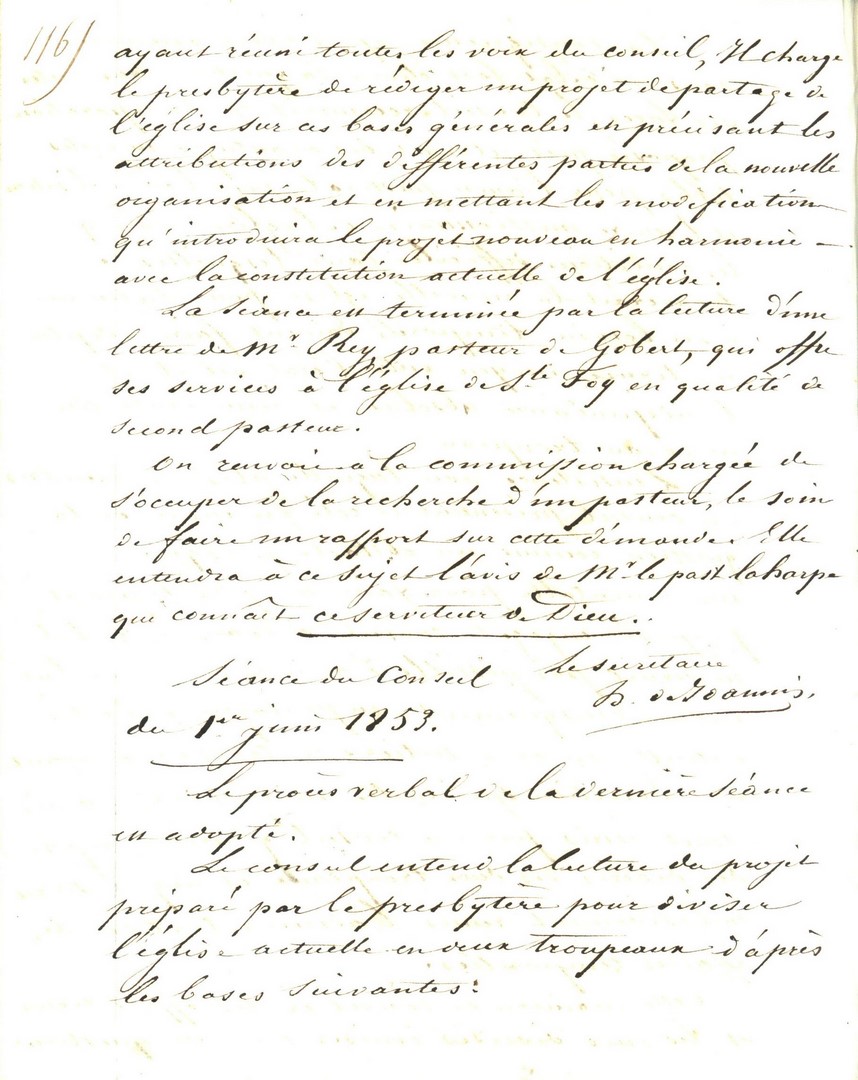 116)
ayant réuni toutes les voix du conseil, Il charge
le presbytère de rédiger un projet de partage de
l'église sur ces bases générales en précisant les
attributions des différentes parties de la nouvelle
organisation et en mettant les modifications
qu'introduira le projet nouveau en harmonie –
avec la constitution actuelle de l'église.
La séance est terminée par la lecture d'une
lettre de Mr Rey, pasteur de Gobert, qui offre
ses services à l'église de Ste Foy en qualité de
second pasteur.
On renvoie à la commission chargée de
s'occuper de la recherche d'un pasteur, le soin
de faire un rapport sur cette démande. Elle
entendra à ce sujet l'avis de Mr le past laharpe
qui connaît ce serviteur de Dieu.
Le secrétaire
Séance du Conseil
h. de Joannis,
du 1er juin 1853.
Le procès verbal de la dernière séance
est adopté.
Le conseil entend la lecture du projet
préparé par le presbytère pour diviser
l'église actuelle en deux troupeaux d'après
les bases suivantes: